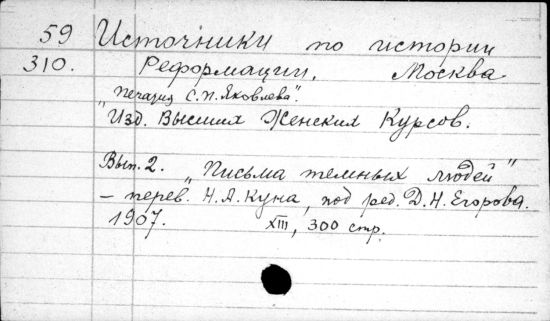 59 Источники по истории
310. Реформации, Москва
"Печатня С. П. Яковлева".
"Изд. Высших Женских Курсов.
Вып. 2. "Письма темных людей"
– перев. Н. А. Куна, под ред. Д. Н. Егорова.
1907. XIII, 300 стр.